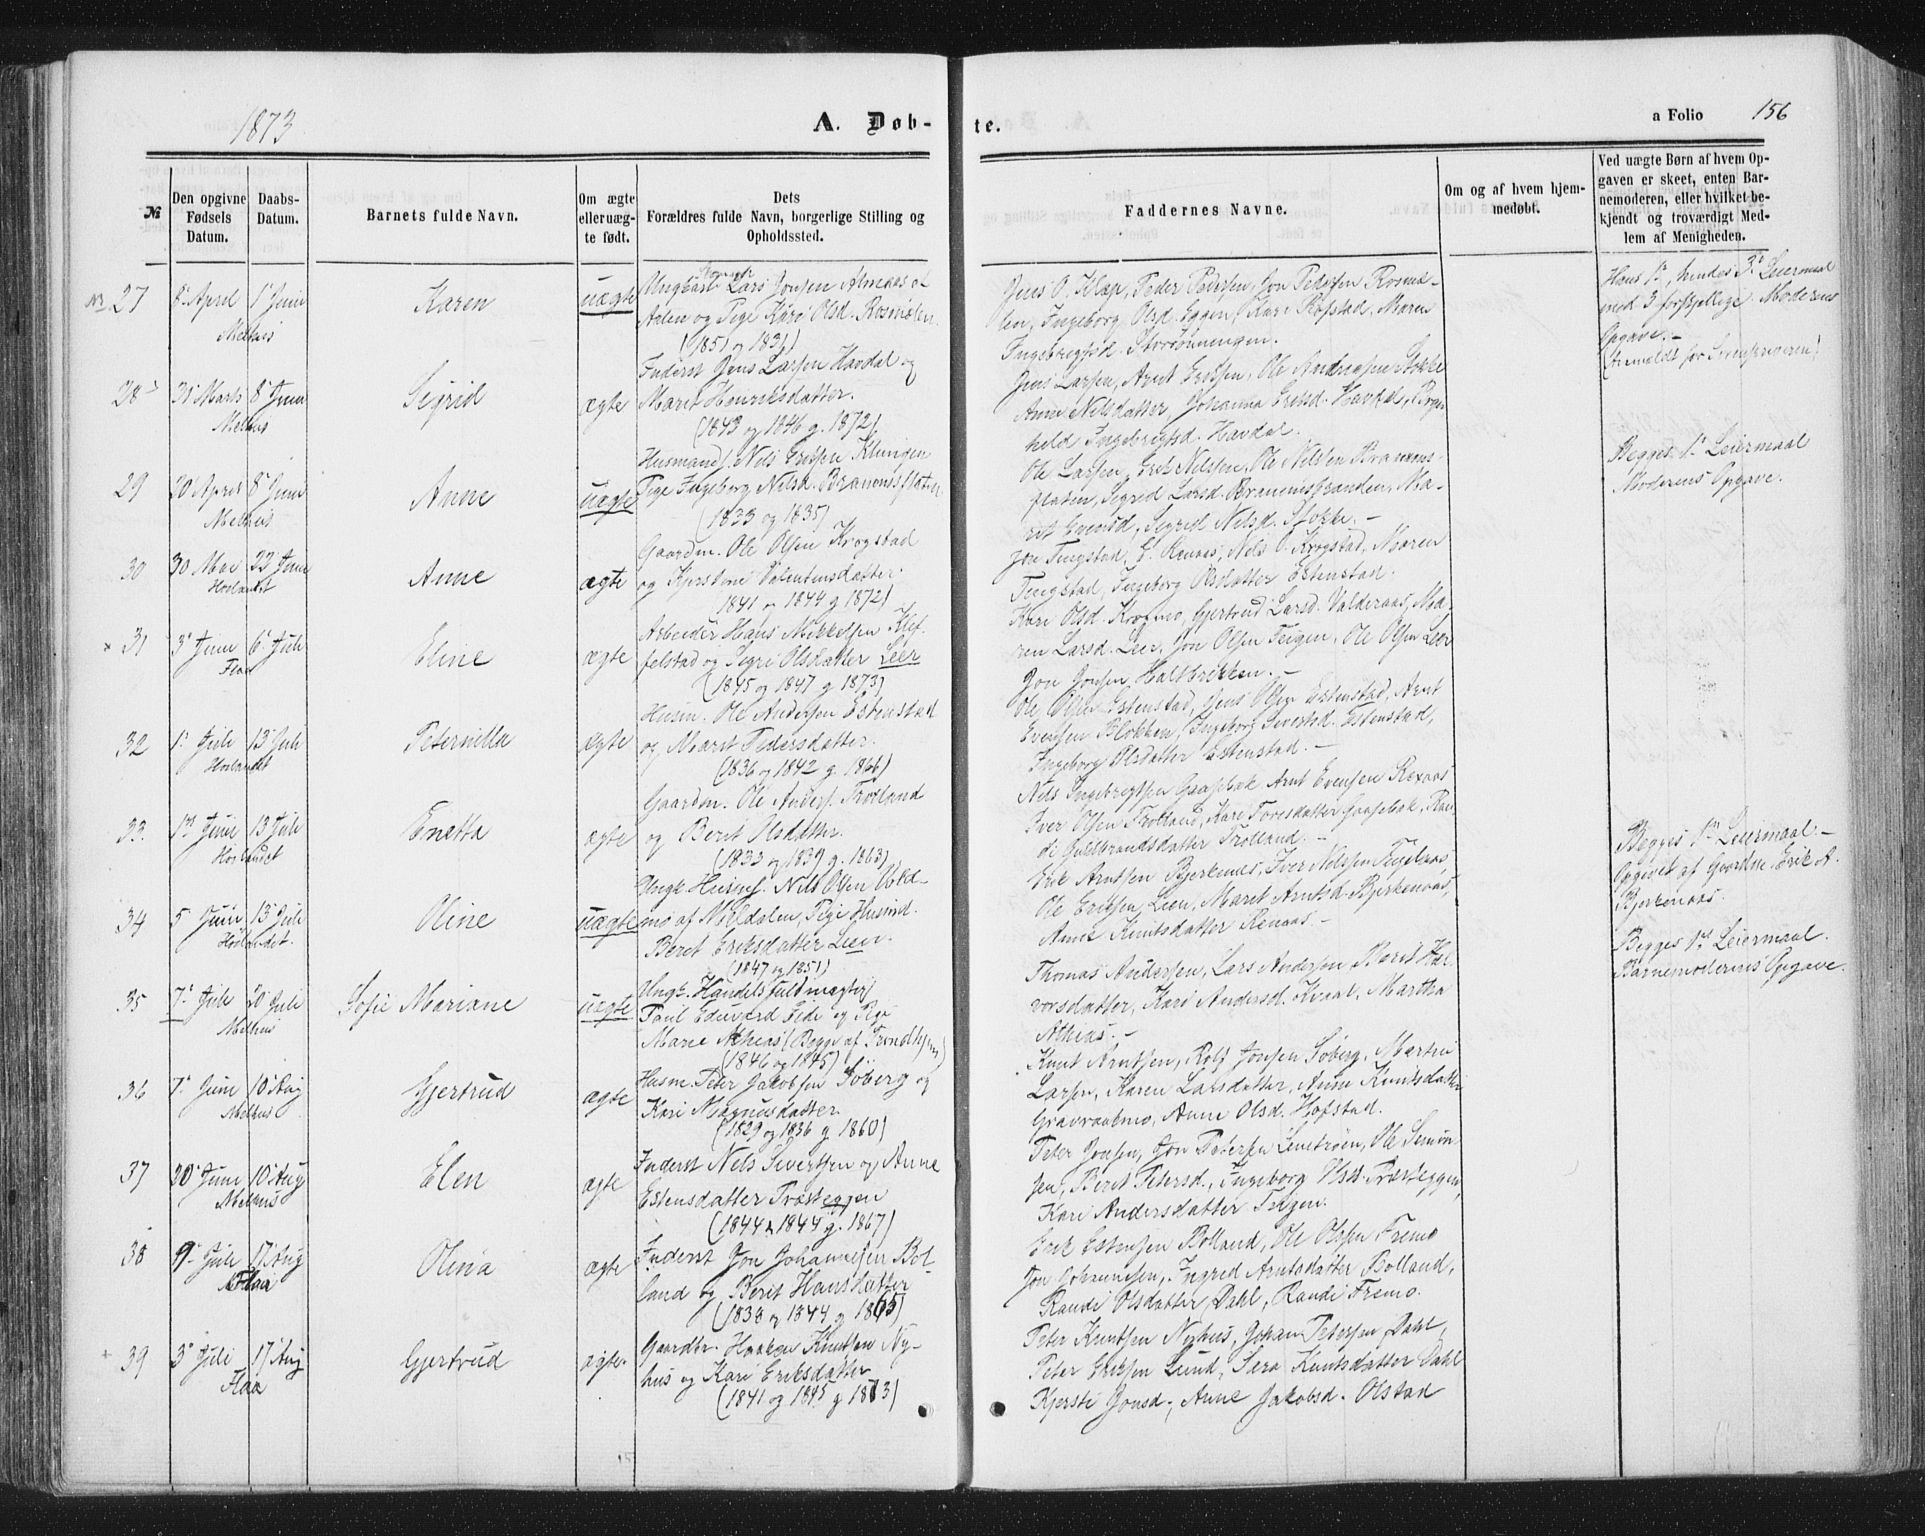 1873
A. Døb-
te.
a Folio 156
№
Den opgivne Fødsels Datum.
Daabs-Datum.
Barnets fulde Navn.
Om ægte eller uæg-te født.
Dets
Forældres fulde Navn, borgerlige Stilling og
Opholdssted.
Faddernes Navne.
Om og af hvem hjem-
medøbt.
Ved uægte Børn af hvem Op-
gaven er skeet, enten Bar-
nemoderen, eller hvilket be-
kjendt og troværdigt Med-
lem af Menigheden.
No. 27 8' April 1' Juni Karen uægte
Melhus
Ungkarl Lars Jonsen Almaas af
Aalen og Pige Kari Olsd. Rosmælen
(1851 og 1831)
Jens O. Klæp, Peder Pedersen, Jon Pedersen Rosmæ-
len, Ingeborg Olsd. Eggen, Kari Rofstad, Maren
Ingebrigtsd. Storrønningen.
Hans 1', hendes 3' Leiermaal
med 3 forskjellige. Moderens
Opgave.-
28 31' Marts 8' Juni Sigrid ægte
Melhus
Inderst Jens Larsen Havdal og
Maret Henriksdatter.
(1843 og 1846 g. 1872)
Jens Larsen, Arnt Eriksen, Ole Andreasen Stokke
Anne Nilsdatter, Johanna Eriksd. Havdal,
held Ingebrigtsd. Havdal.
29 20 April 8' Juni Anne uægte
Melhus
Husmands. Nils Eriksen Klungen
Pige Ingeborg Nilsd. Brammsflaten
(1833 og 1835)
Ole Larsen, Erik Nilsen, Ole Nilsen Bramms-
flaten, Sigrid Larsd. Brammstranden, Ma-
rit Evensd, Sigrid Nilsd. Stokke.-
Begges 1' Leiermaal
Moderens Opgave.
30 30 Mai 22' Juni Anne ægte
Horlandet
Gaardm. Ole Olsen Krogstad
og Kjerstine Valentinsdatter.
(1841 og 1844 g 1872)
Jon Tingstad, E. Renaas, Nils O. Krogstad, Maren
Tingstad, Ingeborg Olsdatter Estenstad.
31 3' Juni 6' Juli Eline ægte
Flaa
Arbeider Hans Mikkelsen Kjef-
felstad og Sigri Olsdatter Leer
(1845 og 1847 g 1873)
Kari Olsd. Krogmo, Gjertrud Larsd. Valderaas, Ma-
ren Larsd. Leer, Jon Olsen Teigen, Ole Olsen Leer
Jon Jonsen Haltbrekken.-
32 1' Juli 13' Juli Peternilla ægte
Horlandet
Husm. Ole Andersen Estenstad
og Marit Pedersdatter.
(1836 og 1842 g. 1866)
Ole Olsen Estenstad, Jens Olsen Estenstad, Arnt
Evensen Blokken, Ingeborg Sivertsd. Estenstad,
Ingeborg Olsdatter Estenstad.-
33. 1ste Juni 13 Juli Enetta ægte
Horlandet
Gaardm. Ole Anders. Trotland
og Berit Olsdatter.
(1833 og 1839 g. 1863)
Nils Ingebrigtsen Gaasbak, Arnt Evensen Renaas
Iver Olsen Trotland, Kari Toresdatter Gaasbak, Ran-
di Guldbrandsdatter Trotland.-
34 5 Juni 13' Juli Oline uægte
Horlandet.
Ungk. Nils Olsen Vold-
mo af Meldalen, Pige Husmd.
Beret Eriksdatter Lien.
(1847 og 1851)
Erik Arntsen Bjerkenås, Iver Nilssen
Ole Eriksen Lien, Maret Arntsd. Bjerkenaas,
Anne Knutsdatter Renaas.-
Begges 1ste Leiermaal.-
Opgivet af Gaardm. Erik A.
Bjerkenaas.
35 7' Juli 20' Juli Sofie Mariane uægte
Melhus
Ungk. Handelsfuldmægtig
Paul Edevard Eide og Pige
Marie Athias (Begge af Trondhjem)
(1846 og 1845)
Thomas Andersen, Lars Andersen, Marit Hal-
vorsdatter, Kari Andersd. Kvaal, Martha
Athias.-
Begges 1ste Leiermaal.
Barnemoderens Opgave.
36 7' Juni 10' Aug Gjertrud ægte
Melhus
Husm. Peter Jakobsen Søberg og
Kari Magnusdatter.
(1829 og 1836 g 1860)
Knut Arntsen, Rolf Jonsen Søberg, Martin
Larsen, Karen Larsdatter, Anne Knutsdatter
Gravraakmo, Anne Olsd. Hofstad.
37 20' Juni 10' Aug Elen ægte
Melhus
Inderst Nils Sivertsen og Anne
Estensdatter Træsteggen
(1844 og 1844 g. 1867)
Peter Jonsen, Jon Petersen Lenertrøen, Ole Simon-
sen, Berit Petersd., Ingeborg Olsd. Træsteggen,
Kari Andersdatter Teigen.
38 9' Juli 17' Aug Olina ægte
Flaa
Inderst Jon Johannesen Bol-
land og Berit Hansdatter
(1838 og 1844 g 1865)
Erik Estensen Bolland, Ole Olsen Fremo
Jon Johannesen, Ingrid Arntsdatter Bolland,
Randi Olsdatter Dahl, Randi Fremo.
39 3' Juli 17' Aug Gjertrud ægte.
Flaa
Gaardbr. Haaken Knutsen Ny-
hus og Kari Eriksdatter
(1841 og 1845 g 1873)
Peter Knutsen Nyhus, Johan Petersen Dahl,
Peter Eriksen Lund, Sara Knutsdatter Dahl
Kjersti Jonsd., Anne Jakobsd. Olstad